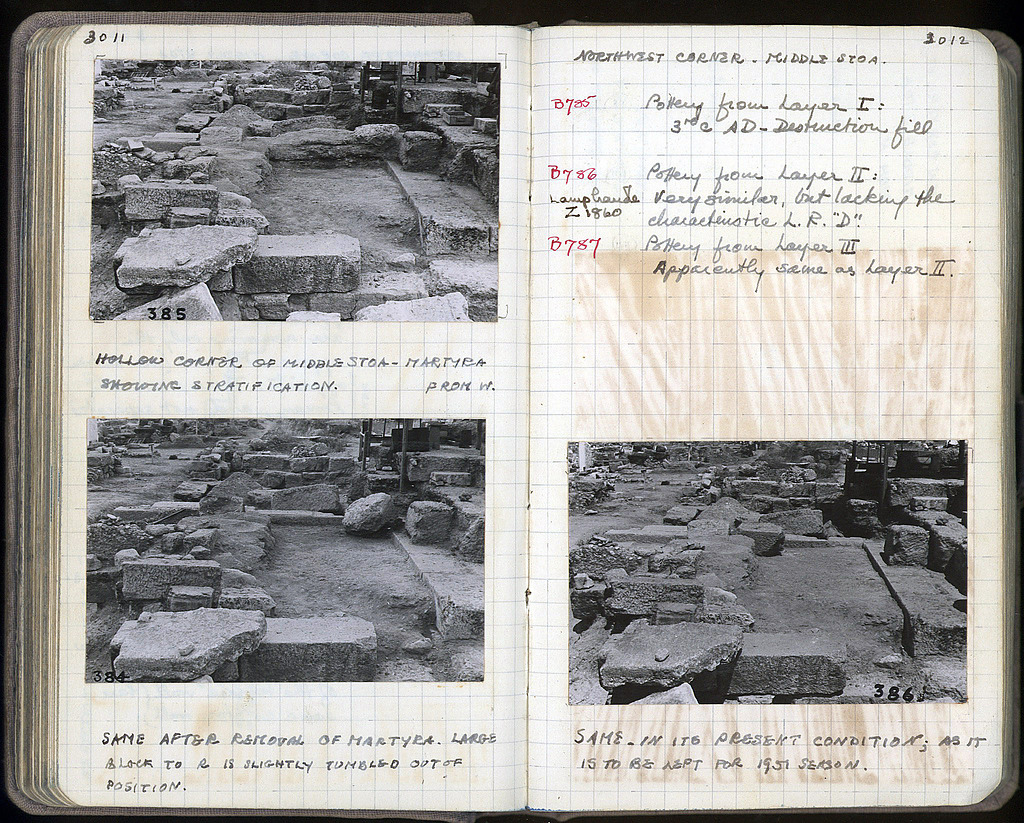 3011
385
HOLLOW CORNER OF MIDDLE STOA - MARTYRA
SHOWING STRATIFICATION. FROM W.
384
SAME AFTER REMOVAL OF MARTYRA. LARGE
BLOCK TO R IS SLIGHTLY TUMBLED OUT OF
POSITION.
3012
NORTHWEST CORNER - MIDDLE STOA.
B785 Pottery from Layer I:
3rd c AD - Destruction fill
B786 Pottery from Layer II:
Lamp handle Very similar, but lacking the
Z 1860 characteristic L.R. "D".
B787 Pottery from Layer III
Apparently same as Layer II.
386
SAME - IN ITS PRESENT CONDITION; AS IT
IS TO BE LEFT FOR 1951 SEASON.